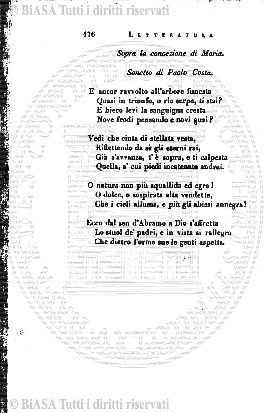 © BiASA Tutti i diritti riservati
176 LETTERATURA
Sopra la concezione di Maria.
Sonetto di Paolo Costa.
E ancor ravvolto all'arbore fiancato
Quasi in trionfo, o rio serpe, ti stai?
E bieco levi la sanguigna cresta
Nove frodi pensando e novi guai?
Vedi che cinta di stellata vesta,
Riflettendo da sè gli eterni rai,
Già s'avvanza, t'è sopra, e ti calpesta
Quella, a' cui piedi incatenato andrai.
O natura non più squallida ed egra!
O dolce, o sospirata alta vendetta,
Che i cieli alluma, e più gli abissi annegra!
Ecco dal sen d'Abramo a Dio s'affretta
Lo stuol de' padri, e in vista si rallegra
Che dietro l'orme sue le genti aspetta.
© BiASA Tutti i diritti riservati